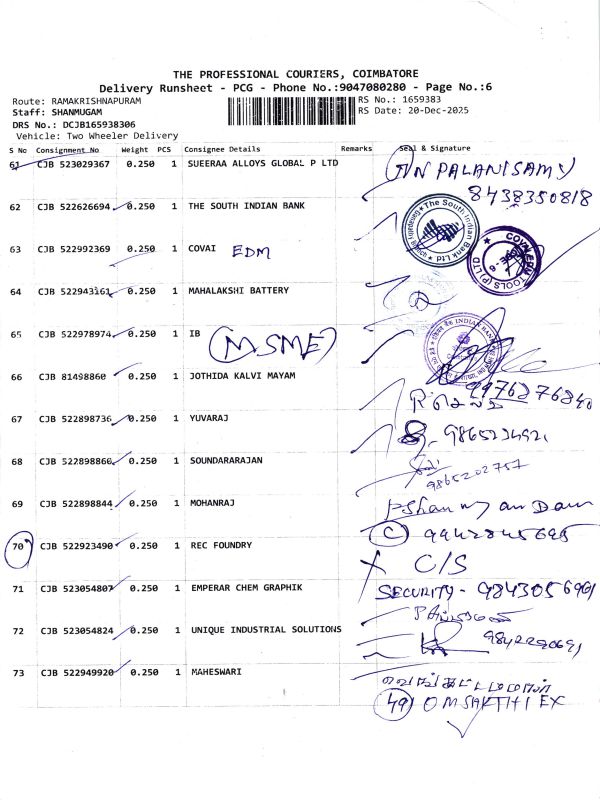 THE PROFESSIONAL COURIERS, COIMBATORE
Delivery Runsheet - PCG - Phone No.:9047080280 - Page No.:6
Route: RAMAKRISHNAPURAM RS No.: 1659383
Staff: SHANMUGAM RS Date: 20-Dec-2025
DRS No.: DCJB165938306
Vehicle: Two Wheeler Delivery
S No Consignment No Weight PCS Consignee Details Remarks Seal & Signature
61 CJB 523029367 0.250 1 SUEERAA ALLOYS GLOBAL P LTD PALANISAMY
8438350818
62 CJB 522626694 0.250 1 THE SOUTH INDIAN BANK The South Indian Bank Ltd
63 CJB 522992369 0.250 1 COVAI EDM TOOLS (P) LTD
64 CJB 522943161 0.250 1 MAHALAKSHI BATTERY
65 CJB 522978974 0.250 1 IB (MSME) INDIAN BANK
66 CJB 81498860 0.250 1 JOTHIDA KALVI MAYAM 9976276840
67 CJB 522898736 0.250 1 YUVARAJ
68 CJB 522898860 0.250 1 SOUNDARARAJAN 9865202757
69 CJB 522898844 0.250 1 MOHANRAJ
70 CJB 522923490 0.250 1 REC FOUNDRY C/S
71 CJB 523054807 0.250 1 EMPERAR CHEM GRAPHIK SECURITY - 9843056961
72 CJB 523054824 0.250 1 UNIQUE INDUSTRIAL SOLUTIONS
73 CJB 522949920 0.250 1 MAHESWARI
49 OM SAKTHI EX